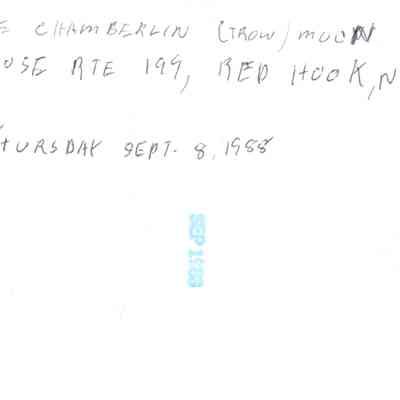 E CHAMBERLIN (TROW) MOON
OUSE RTE 199, RED HOOK, N
HURSDAY SEPT. 8, 1988
SEP 1988